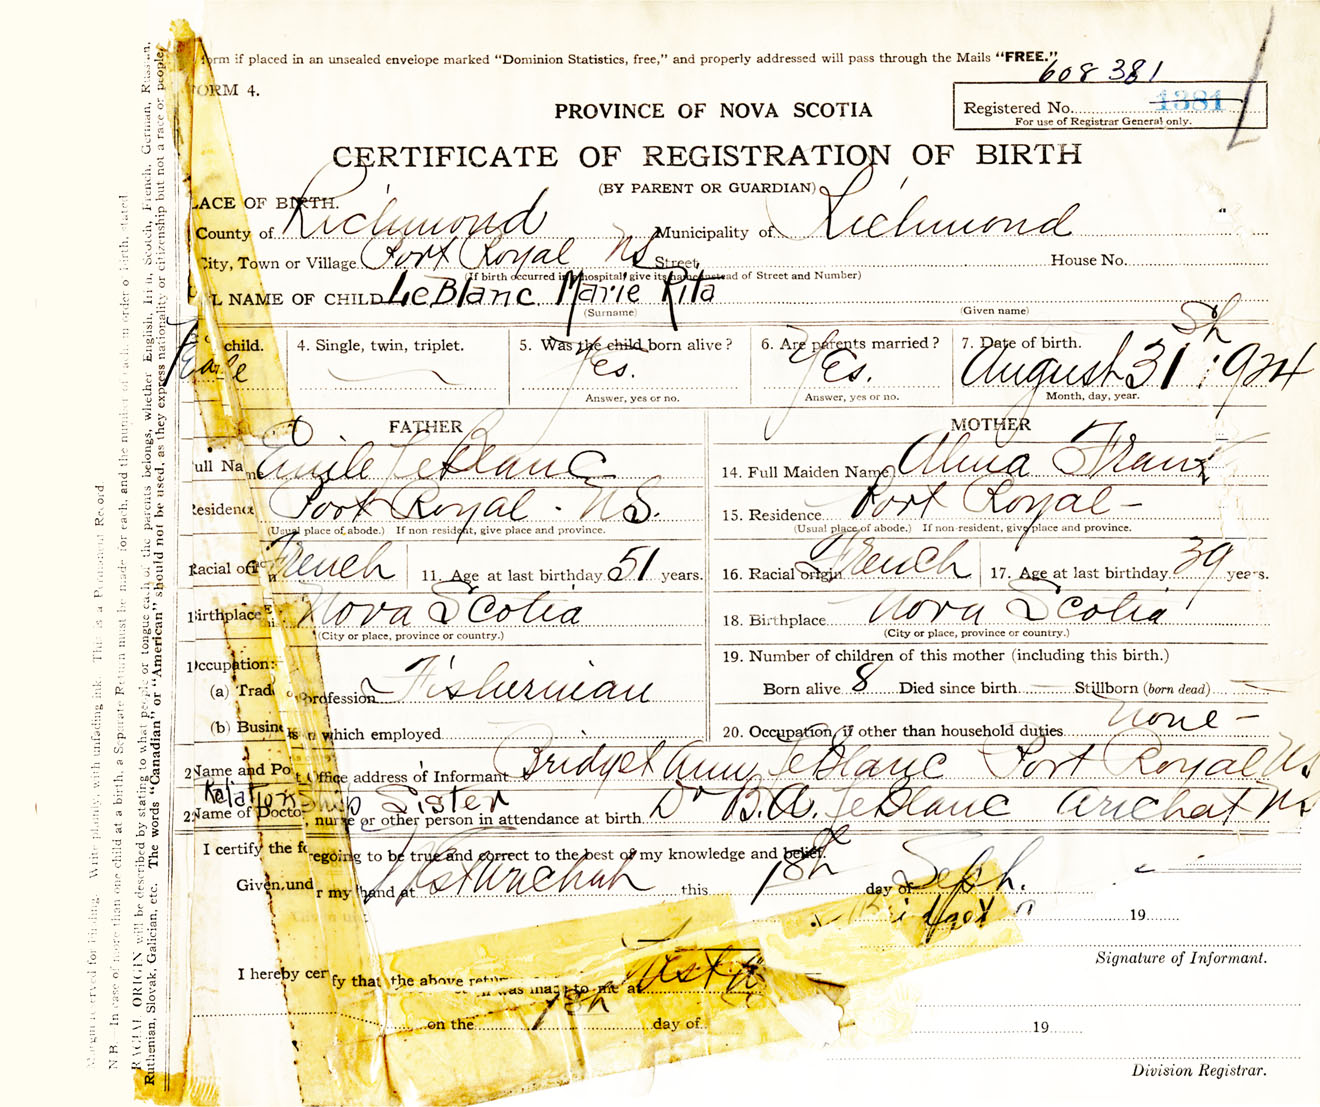 form if placed in an unsealed envelope marked “Dominion Statistics, free,” and properly addressed will pass through the Mails “FREE.”
608381
ORM 4.
PROVINCE OF NOVA SCOTIA
Registered No. 1381
For use of Registrar General only.
CERTIFICATE OF REGISTRATION OF BIRTH
(BY PARENT OR GUARDIAN)
LACE OF BIRTH.
County of Richmond Municipality of Richmond
City, Town or Village Port Royal NS Street House No.
(If birth occurred in a hospital, give its name instead of Street and Number)
L NAME OF CHILD LeBlanc Marie Rita
(Surname) (Given name)
child. 4. Single, twin, triplet. 5. Was the child born alive? 6. Are parents married? 7. Date of birth.
Yes. Yes. August 31 1924
Answer, yes or no. Answer, yes or no. Month, day, year.
FATHER MOTHER
ull Name Emile LeBlanc 14. Full Maiden Name Alma
Residence Port Royal - NS. 15. Residence Port Royal -
(Usual place of abode.) If non resident, give place and province. (Usual place of abode.) If non-resident, give place and province.
Racial or French 11. Age at last birthday 51 years. 16. Racial origin French 17. Age at last birthday 39 years.
Birthplace Nova Scotia 18. Birthplace Nova Scotia
(City or place, province or country.) (City or place, province or country.)
Occupation: 19. Number of children of this mother (including this birth.)
(a) Trad profession Fisherman Born alive 8 Died since birth Stillborn (born dead)
(b) Busin which employed 20. Occupation if other than household duties none -
Name and Post Office address of Informant Bridget Ann LeBlanc Port Royal NS
Relationship Sister Dr B.A. LeBlanc Arichat NS
Name of Docto, nurse or other person in attendance at birth
I certify the foregoing to be true and correct to the best of my knowledge and belief.
Given under my hand at West Arichat this 18th day of Sept.
19
Signature of Informant.
I hereby certify that the above return was made to me at West
on the 18th day of 19
Division Registrar.
Margin reserved for Binding. Write plainly, with unfading ink. This is a Permanent Record.
N.B. In case of more than one child at a birth, a Separate Return must be made for each, and the number of each, in order of birth, stated
RACIAL ORIGIN will be described by stating to what people or tongue each of the parents belongs, whether English, Irish, Scotch, French, German, Russian,
Ruthenian, Slovak, Galician, etc. The words “Canadian” or “American” should not be used, as they express nationality or citizenship but not a race or people.